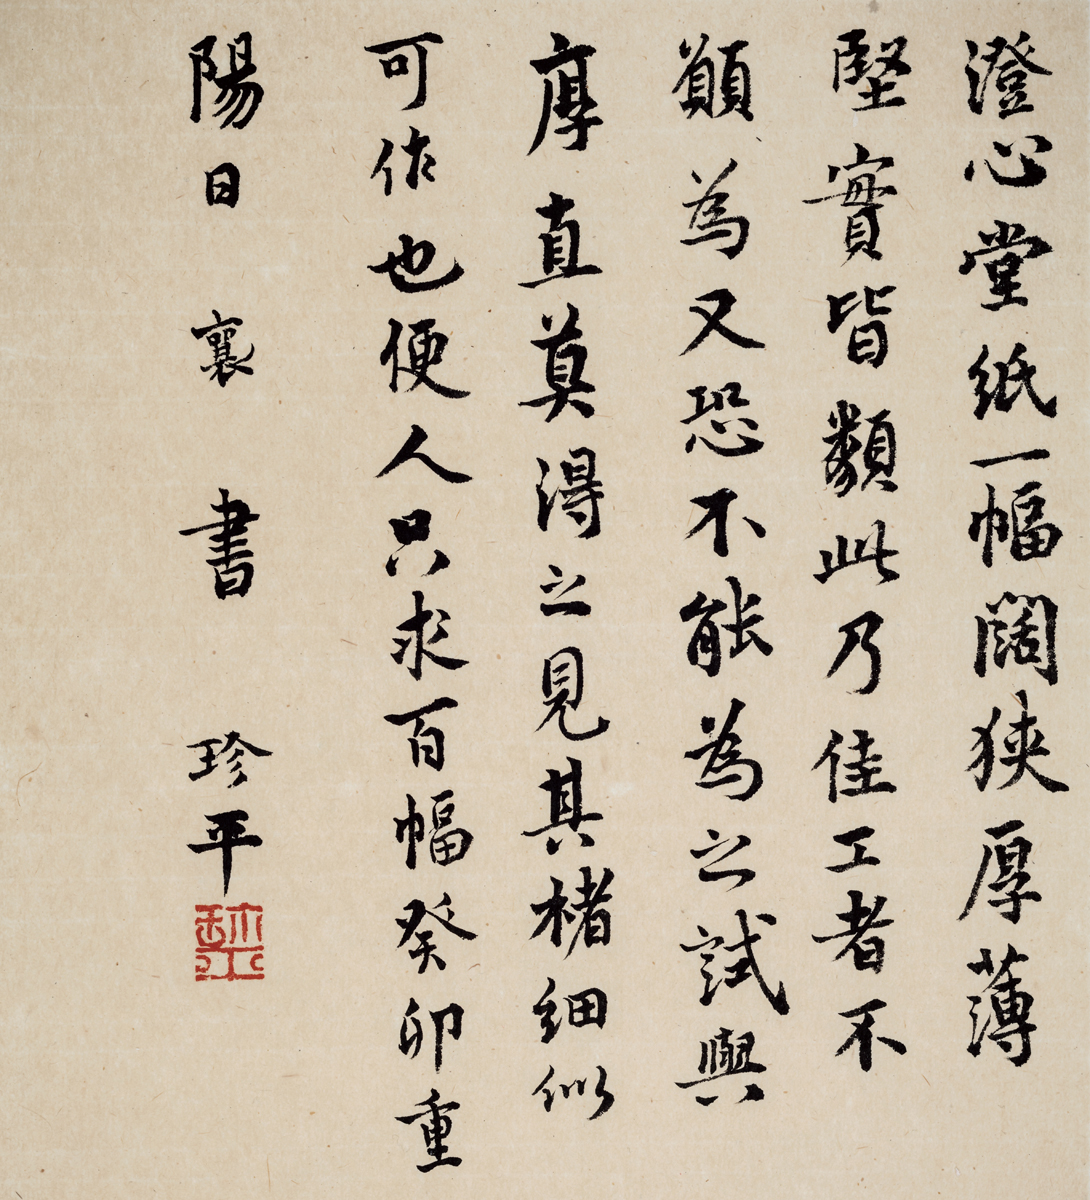 澄心堂紙一幅闊狹厚薄
堅實皆類此乃佳工者不
願為又恐不能為之試與
厚直莫得之見其楮細似
可作也便人只求百幅癸卯重
陽日 襄 書 珍平